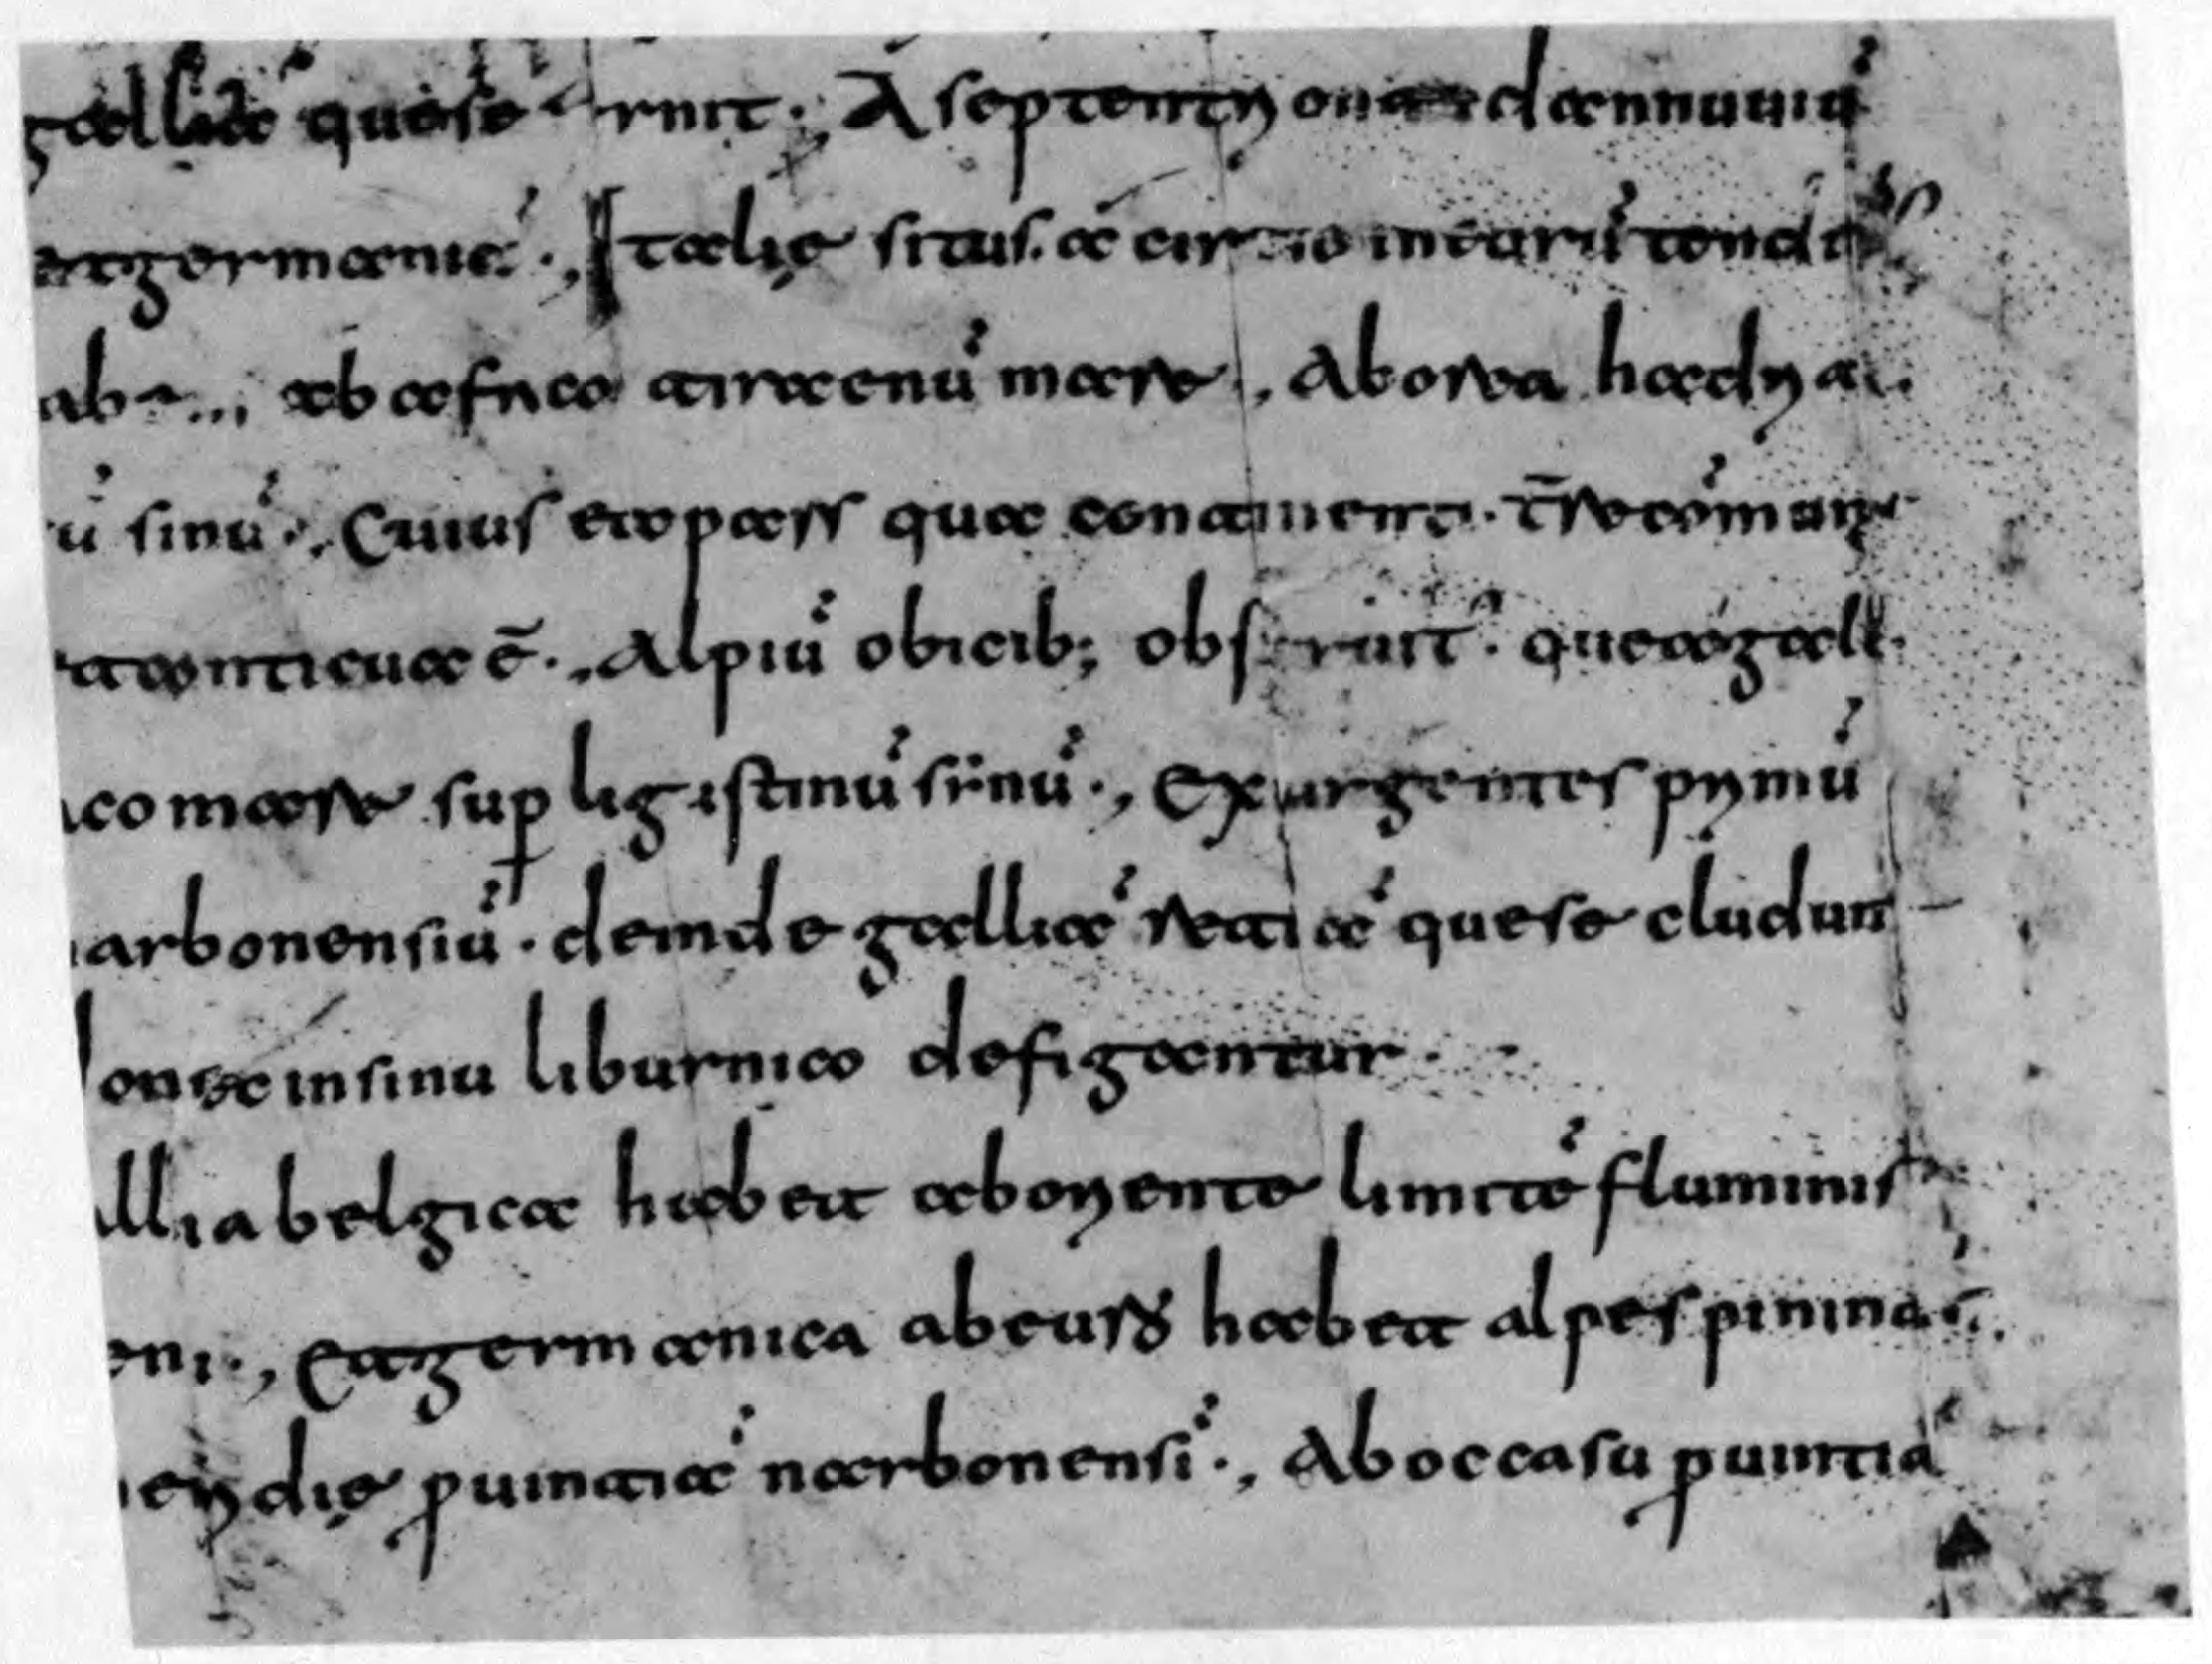 galliā quese runt·, A septentrione danuuiū
et germaniē·, Italię situs· a circio in eurū tendit
ab africo tirrenū mare·, Aborea hadria
ū sinū·, Cuius eto pars qua continenti· tr̄re com̄
et conticua ē·, Alpiū obicib; obstruit· que a gall
co mare sup̱ ligustinū sinū·, Exurgentes primū
arbonensiū· deinde galliā retiā quese cludunt
onec insinu liburnico defigantur·
llia belgica habet aboriente limitē fluminis
eni·, Et germanica ab euro habet alpes pininas·,
eridię puintiā narbonensī·, Aboccasu puintiā